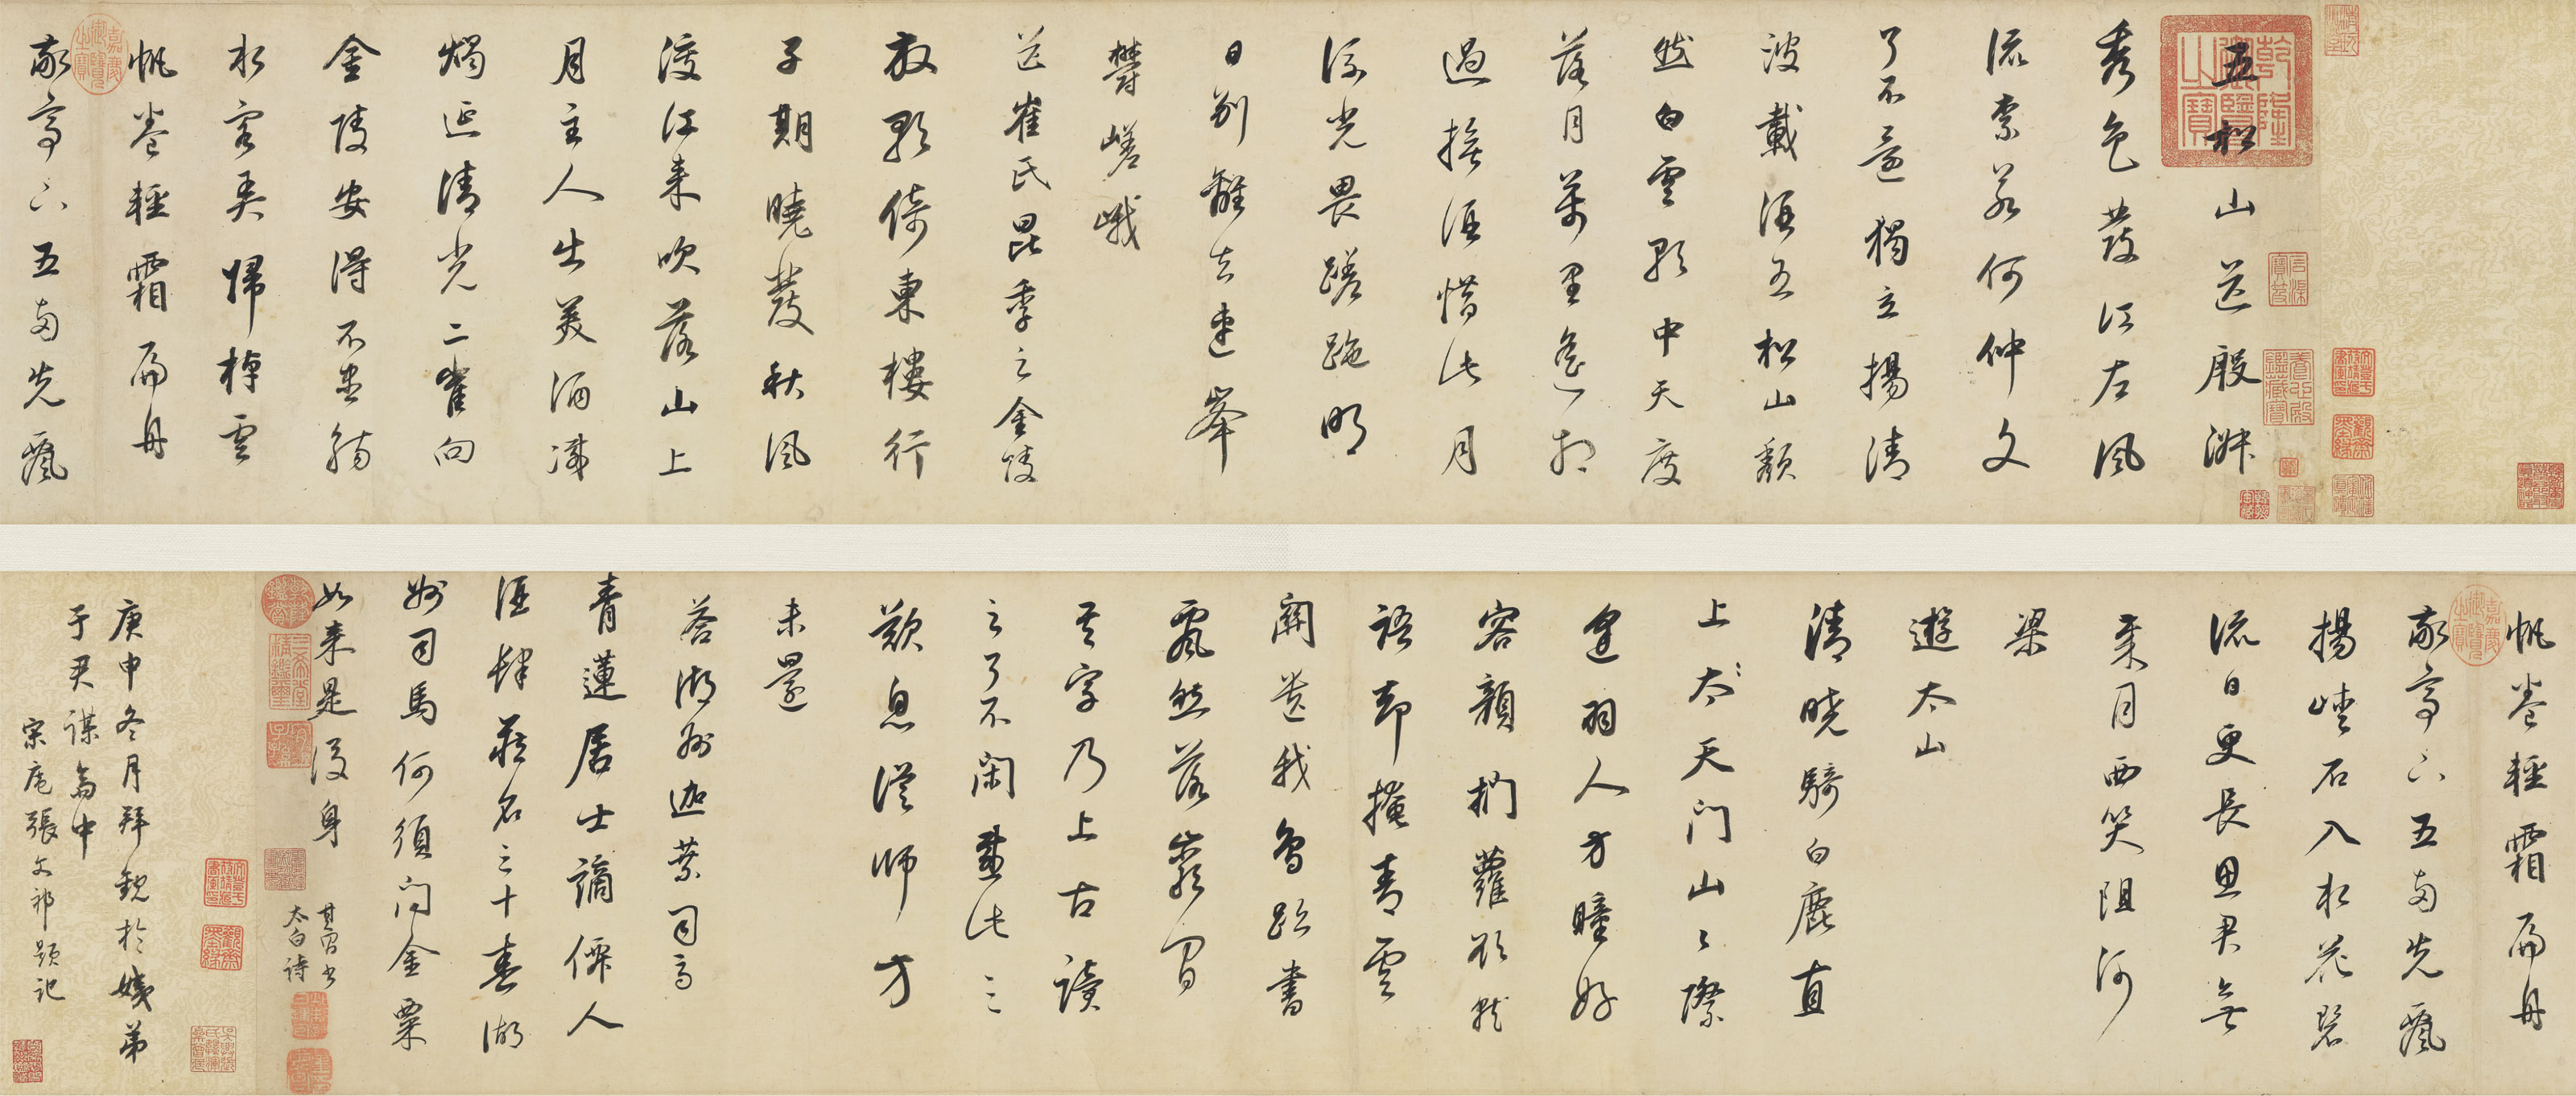 乾隆御覽之寶
五松山送殷淑
秀色發江左風
流柰若何仲文
了不還獨立揚清
波載酒五松山頹
然白雲歌中天度
落月萬里遙相
過撫酒惜此月
流光畏蹉跎明
日別離去連峯
鬱嵯峨
送崔氏昆季之金陵
放歌倚東樓行
子期曉發秋風
渡江來吹落山上
月主人出美酒滅
燭延清光二崔向
金陵安得不盡觴
水客弄歸棹雲
帆卷輕霜扁舟
嘉慶御覽之寶
敬亭下五兩先飄
養心殿鑑藏寶
帆卷輕霜扁舟
嘉慶御覽之寶
敬亭下五兩先飄
揚峽石入水花碧
流日更長思君無
歲月西笑阻河
梁
遊太山
清曉騎白鹿直
上太天門山〻際
逢羽人方瞳好
容顏捫蘿欲就
語却掩青雲
關遺我鳥跡書
飄然落巖間
其字乃上古讀
之了不閑感此三
歎息從師方
未還
答湖州迦葉司馬
青蓮居士謫僊人
酒肆藏名三十春湖
州司馬何須問金粟
如來是後身
其昌書
太白詩
乾隆鑑賞
三希堂精鑑璽
宜子孫
庚申冬月拜觀於弟
于君謀齋中
宋庵張文祁題記